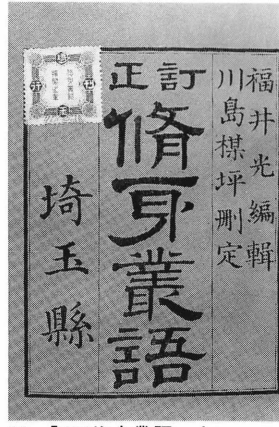 福井光編輯
川島楳坪刪定
訂正
脩身叢語
埼玉縣